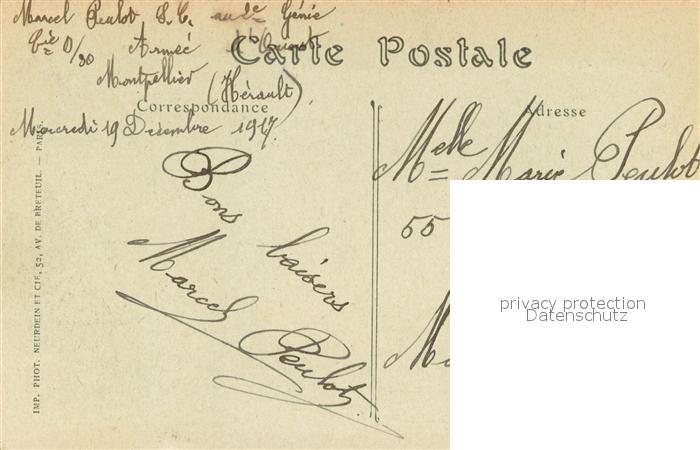 Marcel Peulot S.C. au 2e Génie
Cie D/30 Armée d'Orient
Carte Postale
Montpellier (Hérault)
Correspondance
Adresse
Mercredi 19 Décembre 1917.
Melle Marie Peulot
55
Bons baisers
Marcel Peulot
privacy protection
Datenschutz
IMP. PHOT. NEURDEIN ET CIE, 52, AV. DE BRETEUIL. — PARIS.